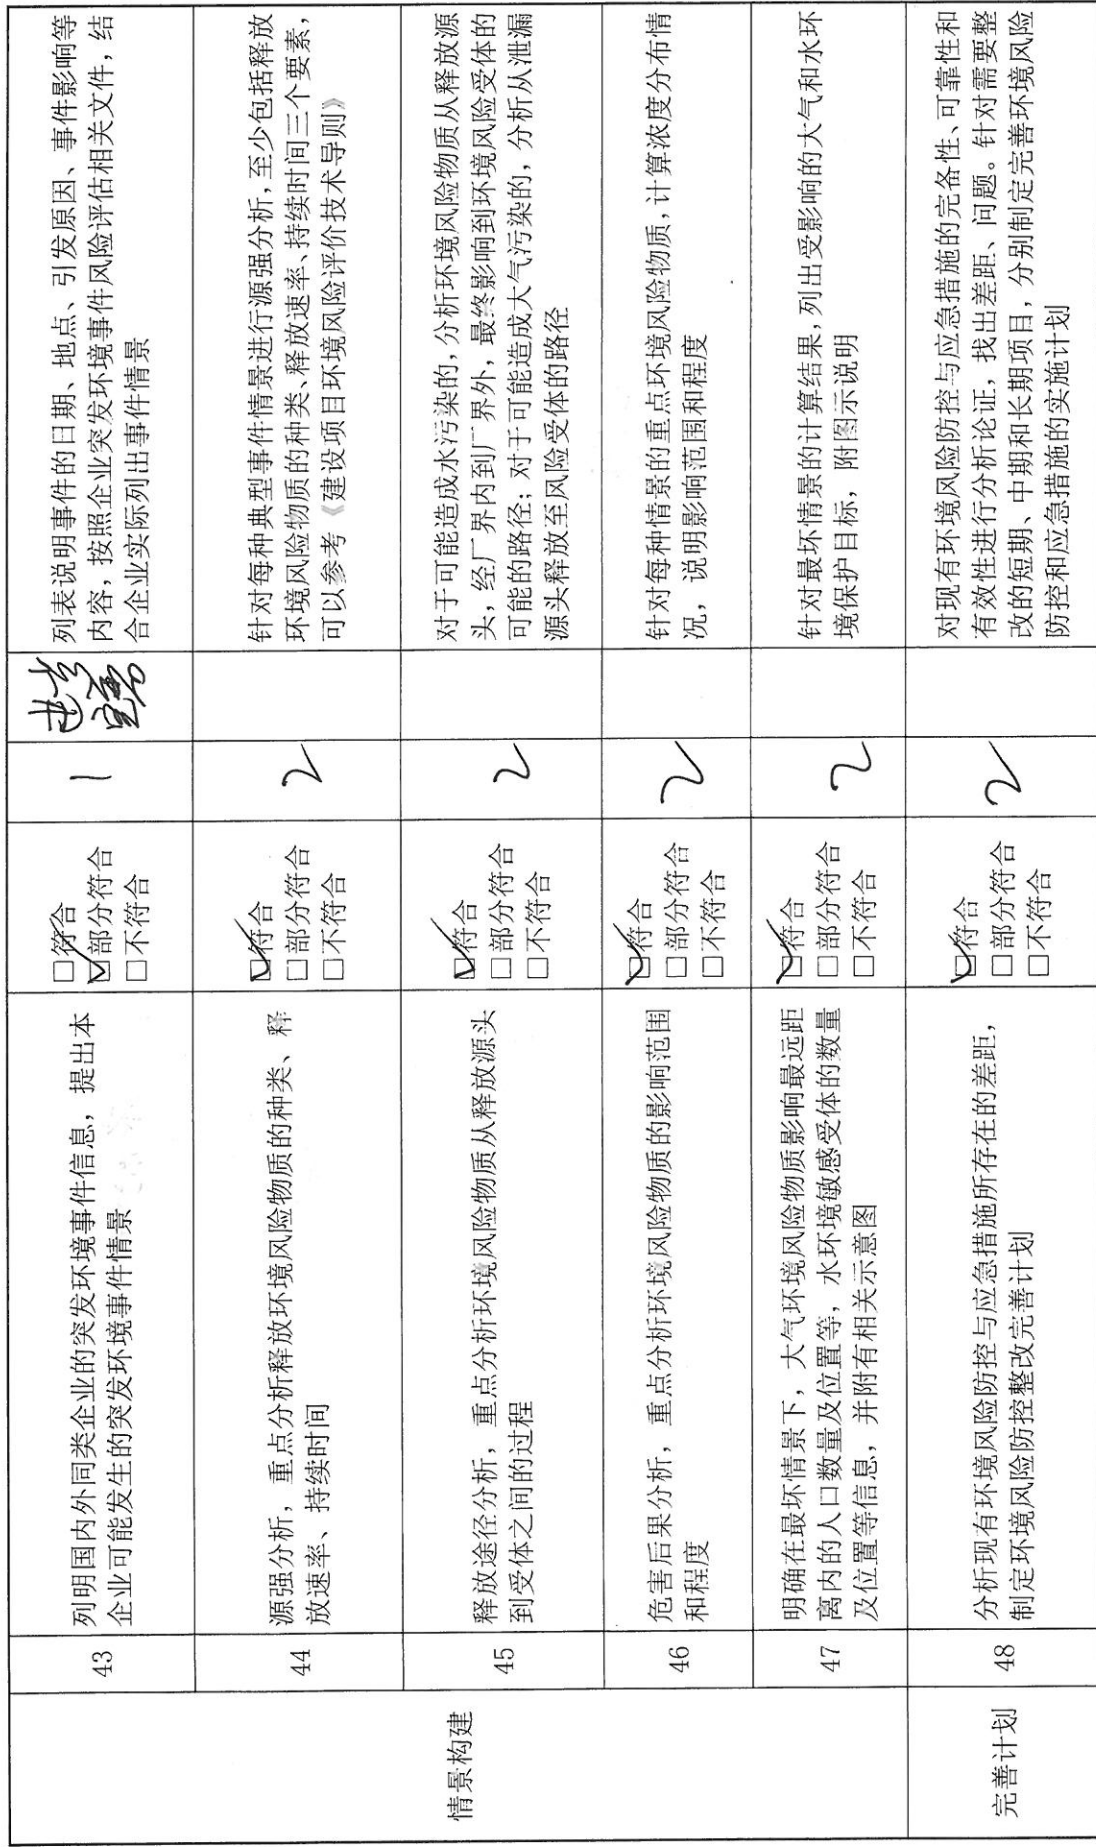 情景构建
43
列明国内外同类企业的突发环境事件信息，提出本
企业可能发生的突发环境事件情景
□符合
☑部分符合
□不符合
1
列表说明事件的日期、地点、引发原因、事件影响等
内容，按照企业突发环境事件风险评估相关文件，结
合企业实际列出事件情景
44
源强分析，重点分析释放环境风险物质的种类、释
放速率、持续时间
☑符合
□部分符合
□不符合
2
针对每种典型事件情景进行源强分析，至少包括释放
环境风险物质的种类、释放速率、持续时间三个要素，
可以参考《建设项目环境风险评价技术导则》
45
释放途径分析，重点分析环境风险物质从释放源头
到受体之间的过程
☑符合
□部分符合
□不符合
2
对于可能造成水污染的，分析环境风险物质从释放源
头，经厂界内到厂界外，最终影响到环境风险受体的
可能的路径；对于可能造成大气污染的，分析从泄漏
源头释放至风险受体的路径
46
危害后果分析，重点分析环境风险物质的影响范围
和程度
☑符合
□部分符合
□不符合
2
针对每种情景的重点环境风险物质，计算浓度分布情
况，说明影响范围和程度
47
明确在最坏情景下，大气环境风险物质影响最远距
离内的人口数量及位置等，水环境敏感受体的数量
及位置等信息，并附有相关示意图
☑符合
□部分符合
□不符合
2
针对最坏情景的计算结果，列出受影响的大气和水环
境保护目标，附图示说明
完善计划
48
分析现有环境风险防控与应急措施所存在的差距，
制定环境风险防控整改完善计划
☑符合
□部分符合
□不符合
2
对现有环境风险防控与应急措施的完备性、可靠性和
有效性进行分析论证，找出差距、问题。针对需要整
改的短期、中期和长期项目，分别制定完善环境风险
防控和应急措施的实施计划